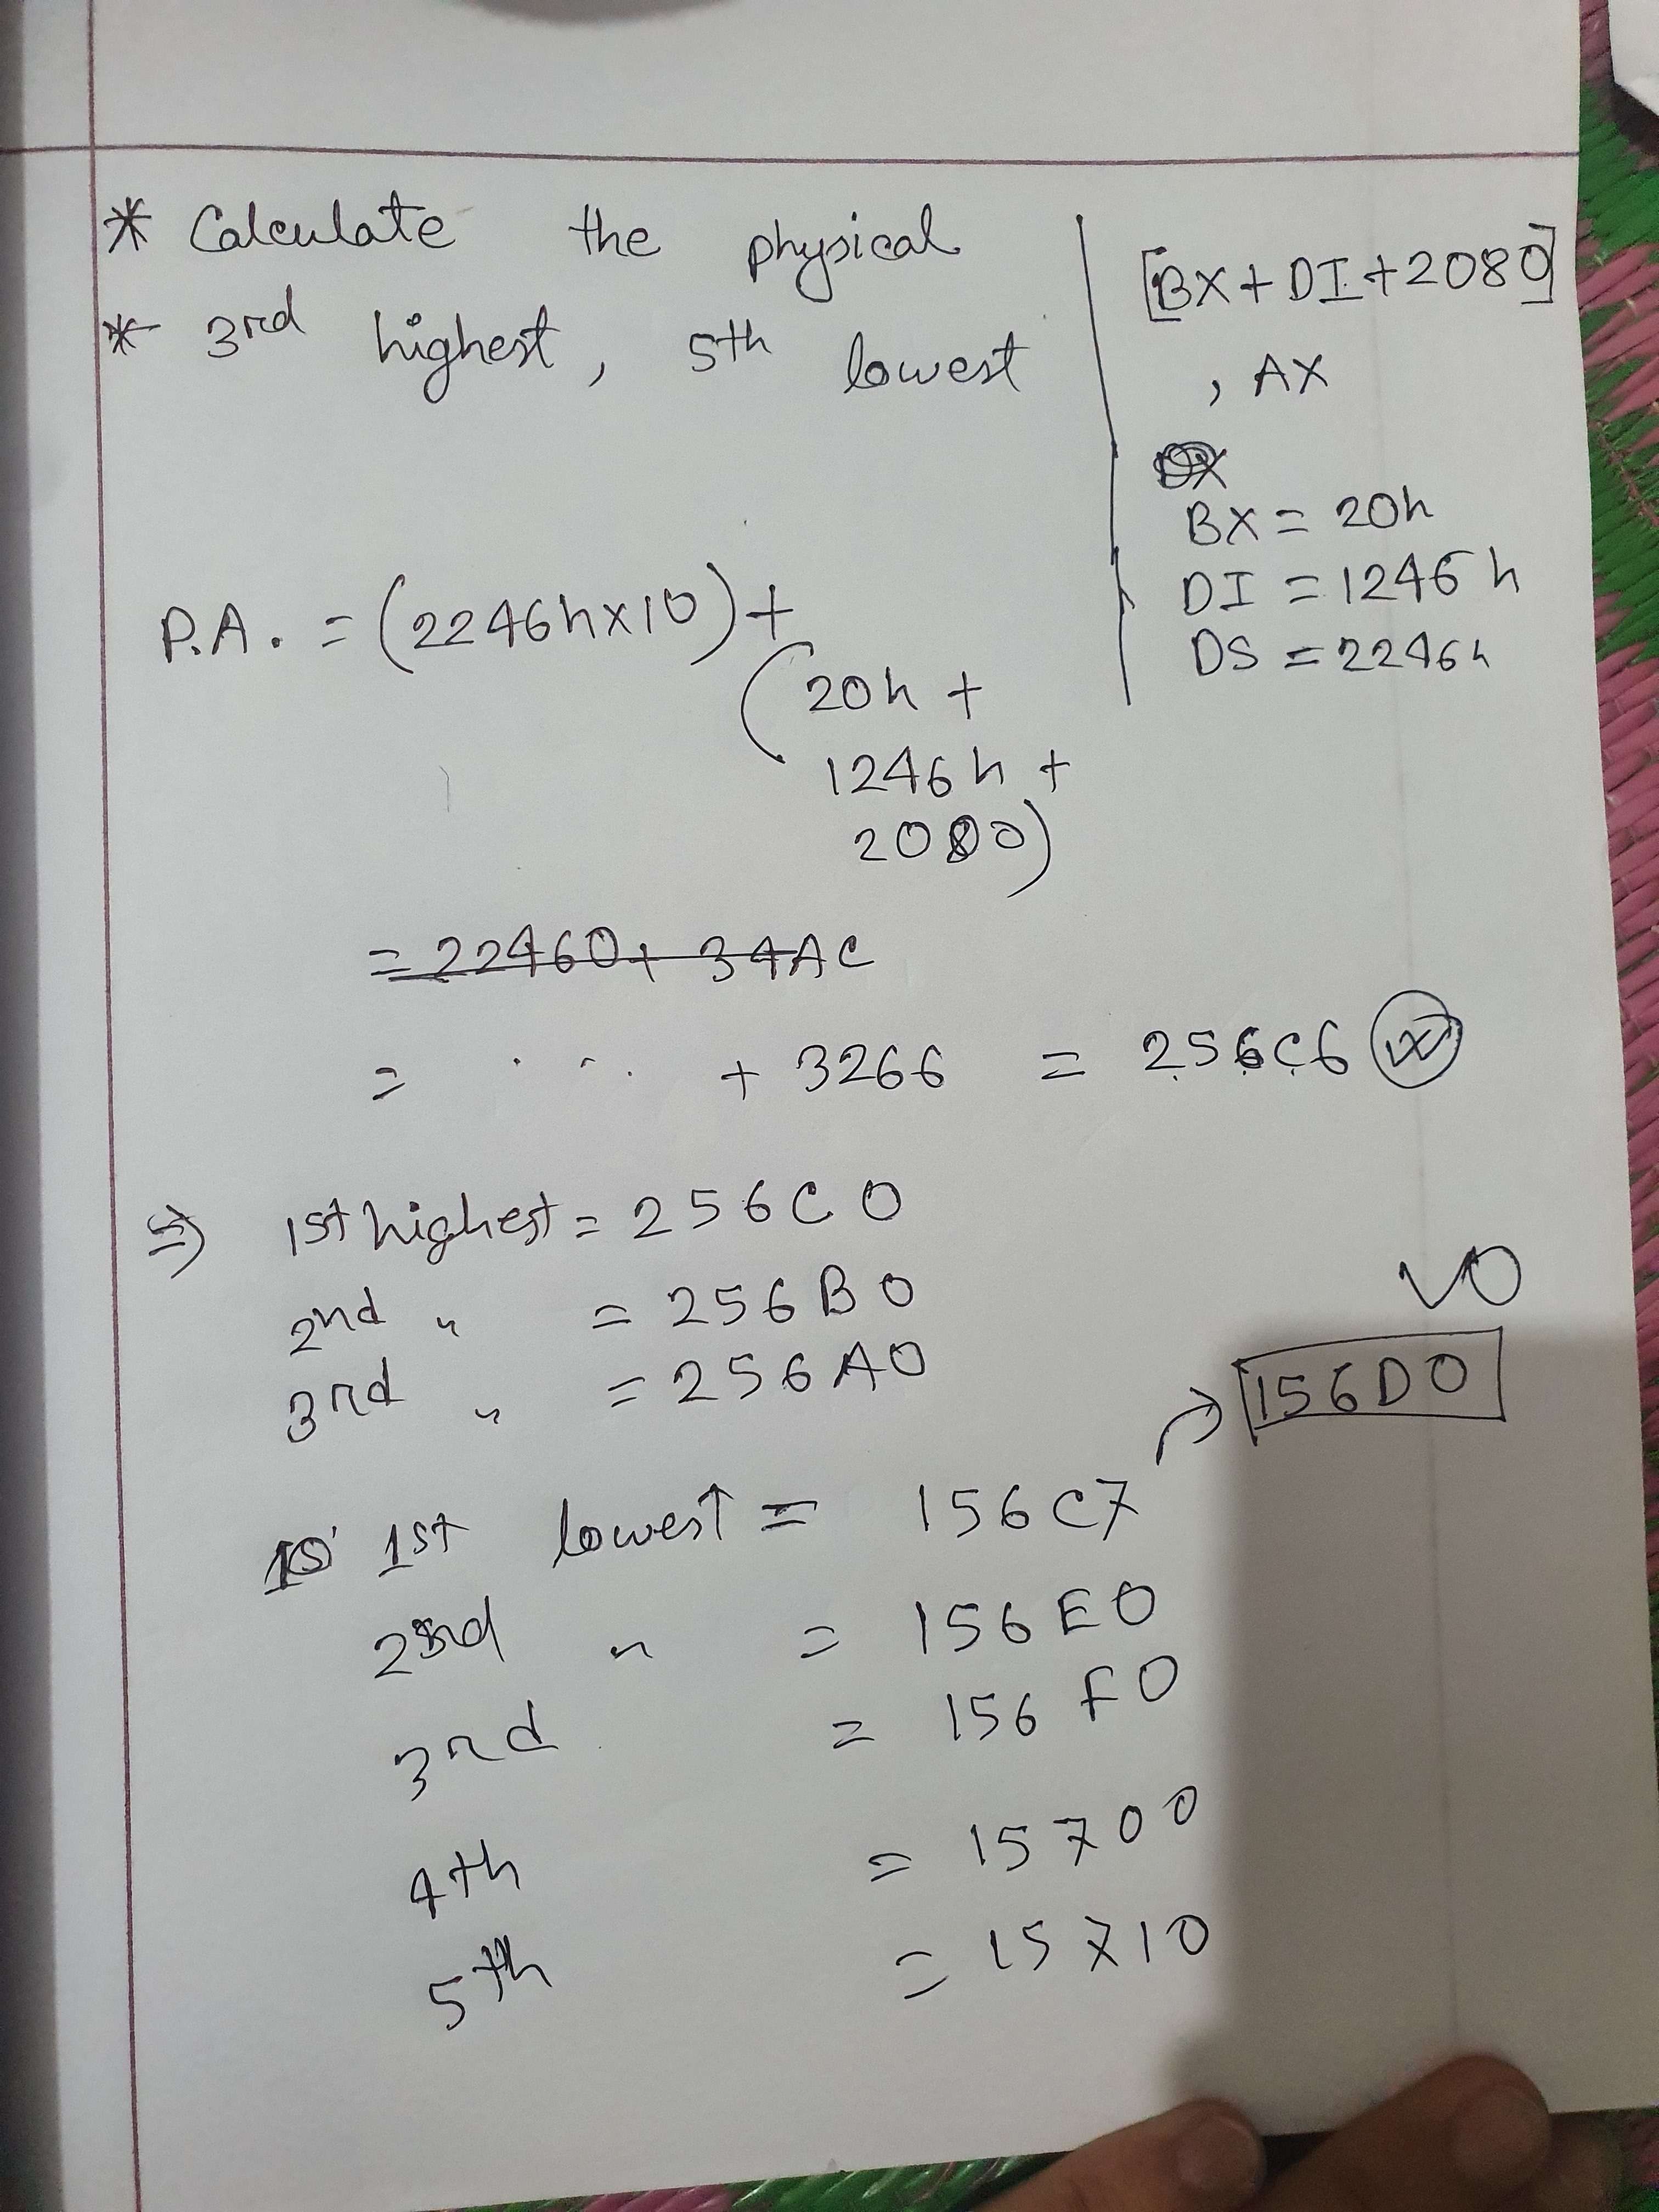 * Calculate the physical
* 3rd highest, 5th lowest
[BX + DI + 2080]
, AX
BX = 20h
DI = 1246h
DS = 2246h
P.A. = (2246h x 10) +
(20h +
1246h +
2000)
= 22460 + 34AC
= . . . . + 3266 = 256C6
=> 1st highest = 256C0
2nd " = 256B0
3rd " = 256A0
1st lowest = 156C7 → 156D0
2nd " = 156E0
3rd = 156F0
4th = 15700
5th = 15710